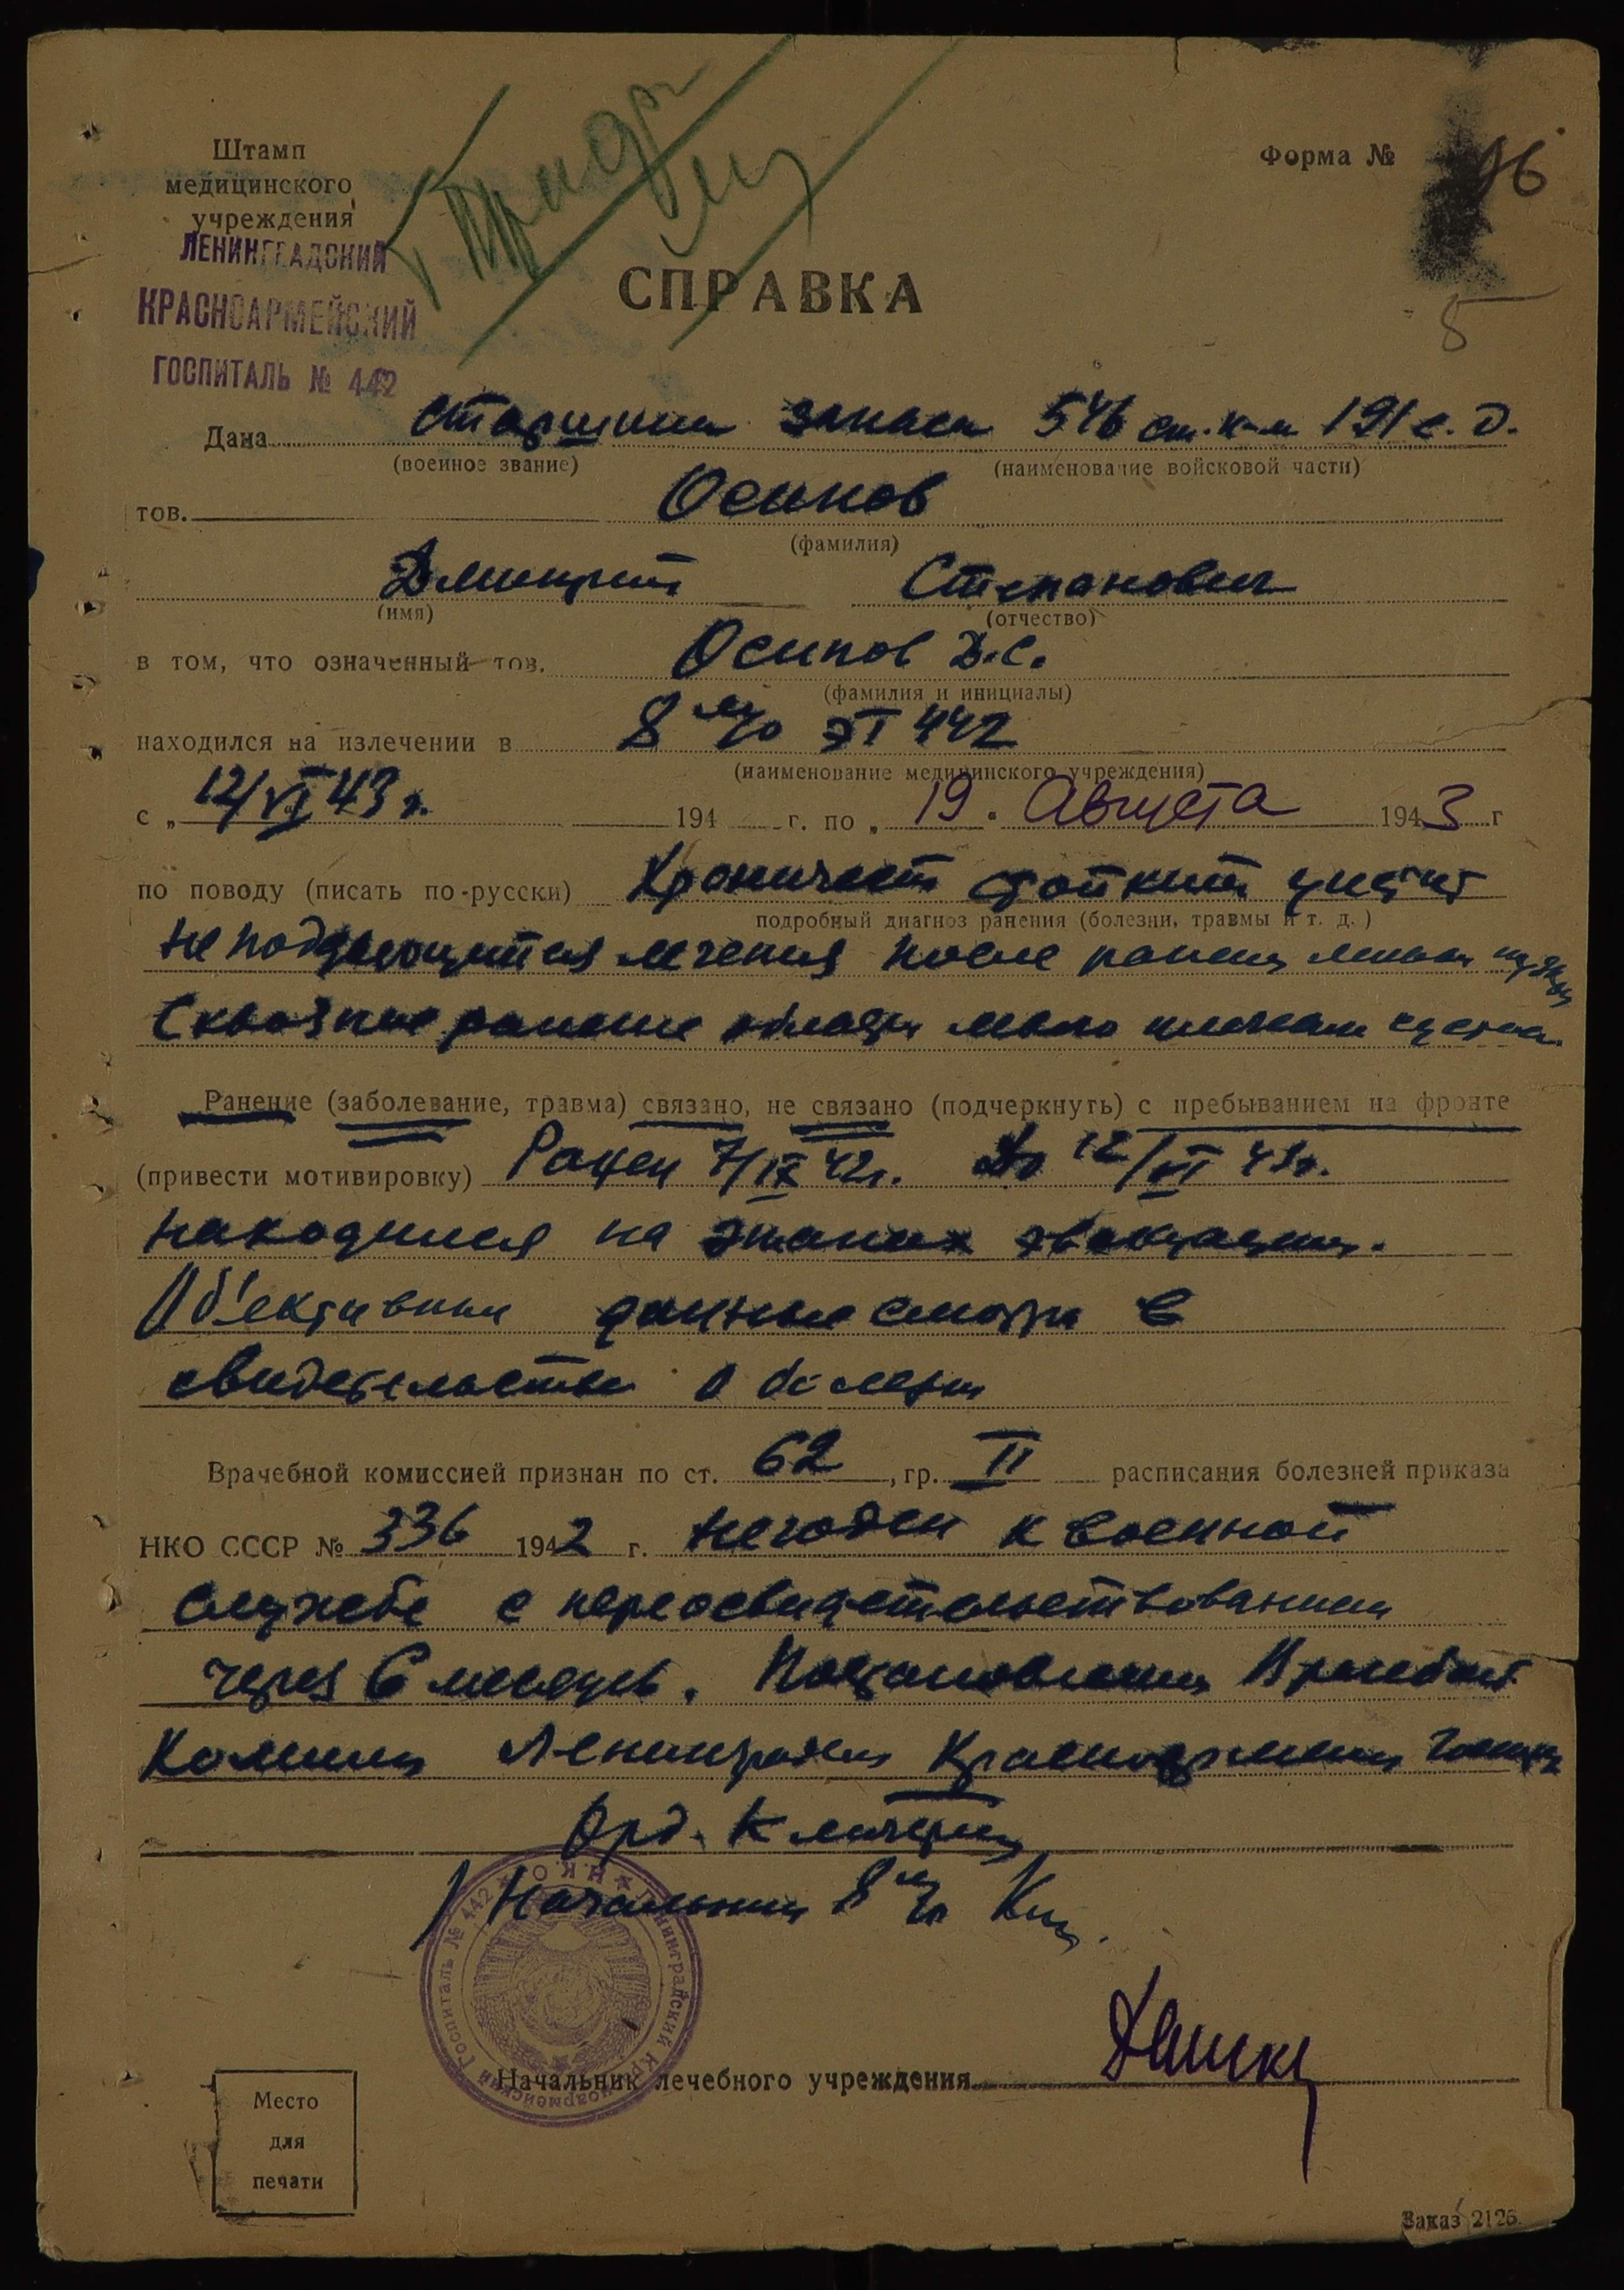 Штамп
медицинского
учреждения
ЛЕНИНГРАДСКИЙ
КРАСНОАРМЕЙСКИЙ
ГОСПИТАЛЬ № 442
Форма № 16
5
СПРАВКА
Дана старшина запаса 546 ст. п-к 191 с. д.
(военное звание) (наименование войсковой части)
тов. Осипов
(фамилия)
Дмитрий Степанович
(имя) (отчество)
в том, что означенный тов. Осипов Д.С.
(фамилия и инициалы)
находился на излечении в 8 м/о ЭГ 442
(наименование медицинского учреждения)
с „ 12/VI 43 г. 194 г. по „ 19 " Августа 1943 г
по поводу (писать по-русски) Хронический стойкий цистит
подробный диагноз ранения (болезни, травмы и т. д.)
не поддающийся лечения после ранения
Сквозное ранение области плечевого сустава
Ранение (заболевание, травма) связано, не связано (подчеркнуть) с пребыванием на фронте
(привести мотивировку) Ранен 7/IX 42 г. До 12/VI 43 г.
находился на этапах эвакуации.
Об'ективные данные смотри в
свидетельстве о болезни
Врачебной комиссией признан по ст. 62, гр. II расписания болезней приказа
НКО СССР № 336 1942 г. негоден к военной
службе с переосвидетельствованием
через 6 месяцев. Постановление Врачебной
Комиссии Ленинградск Красноармейск госпит
Орд.
Начальник 8 м/о
Н.К.О. Ленинградский Красноармейский Госпиталь № 442
Начальник лечебного учреждения
Место
для
печати
Заказ 2126.